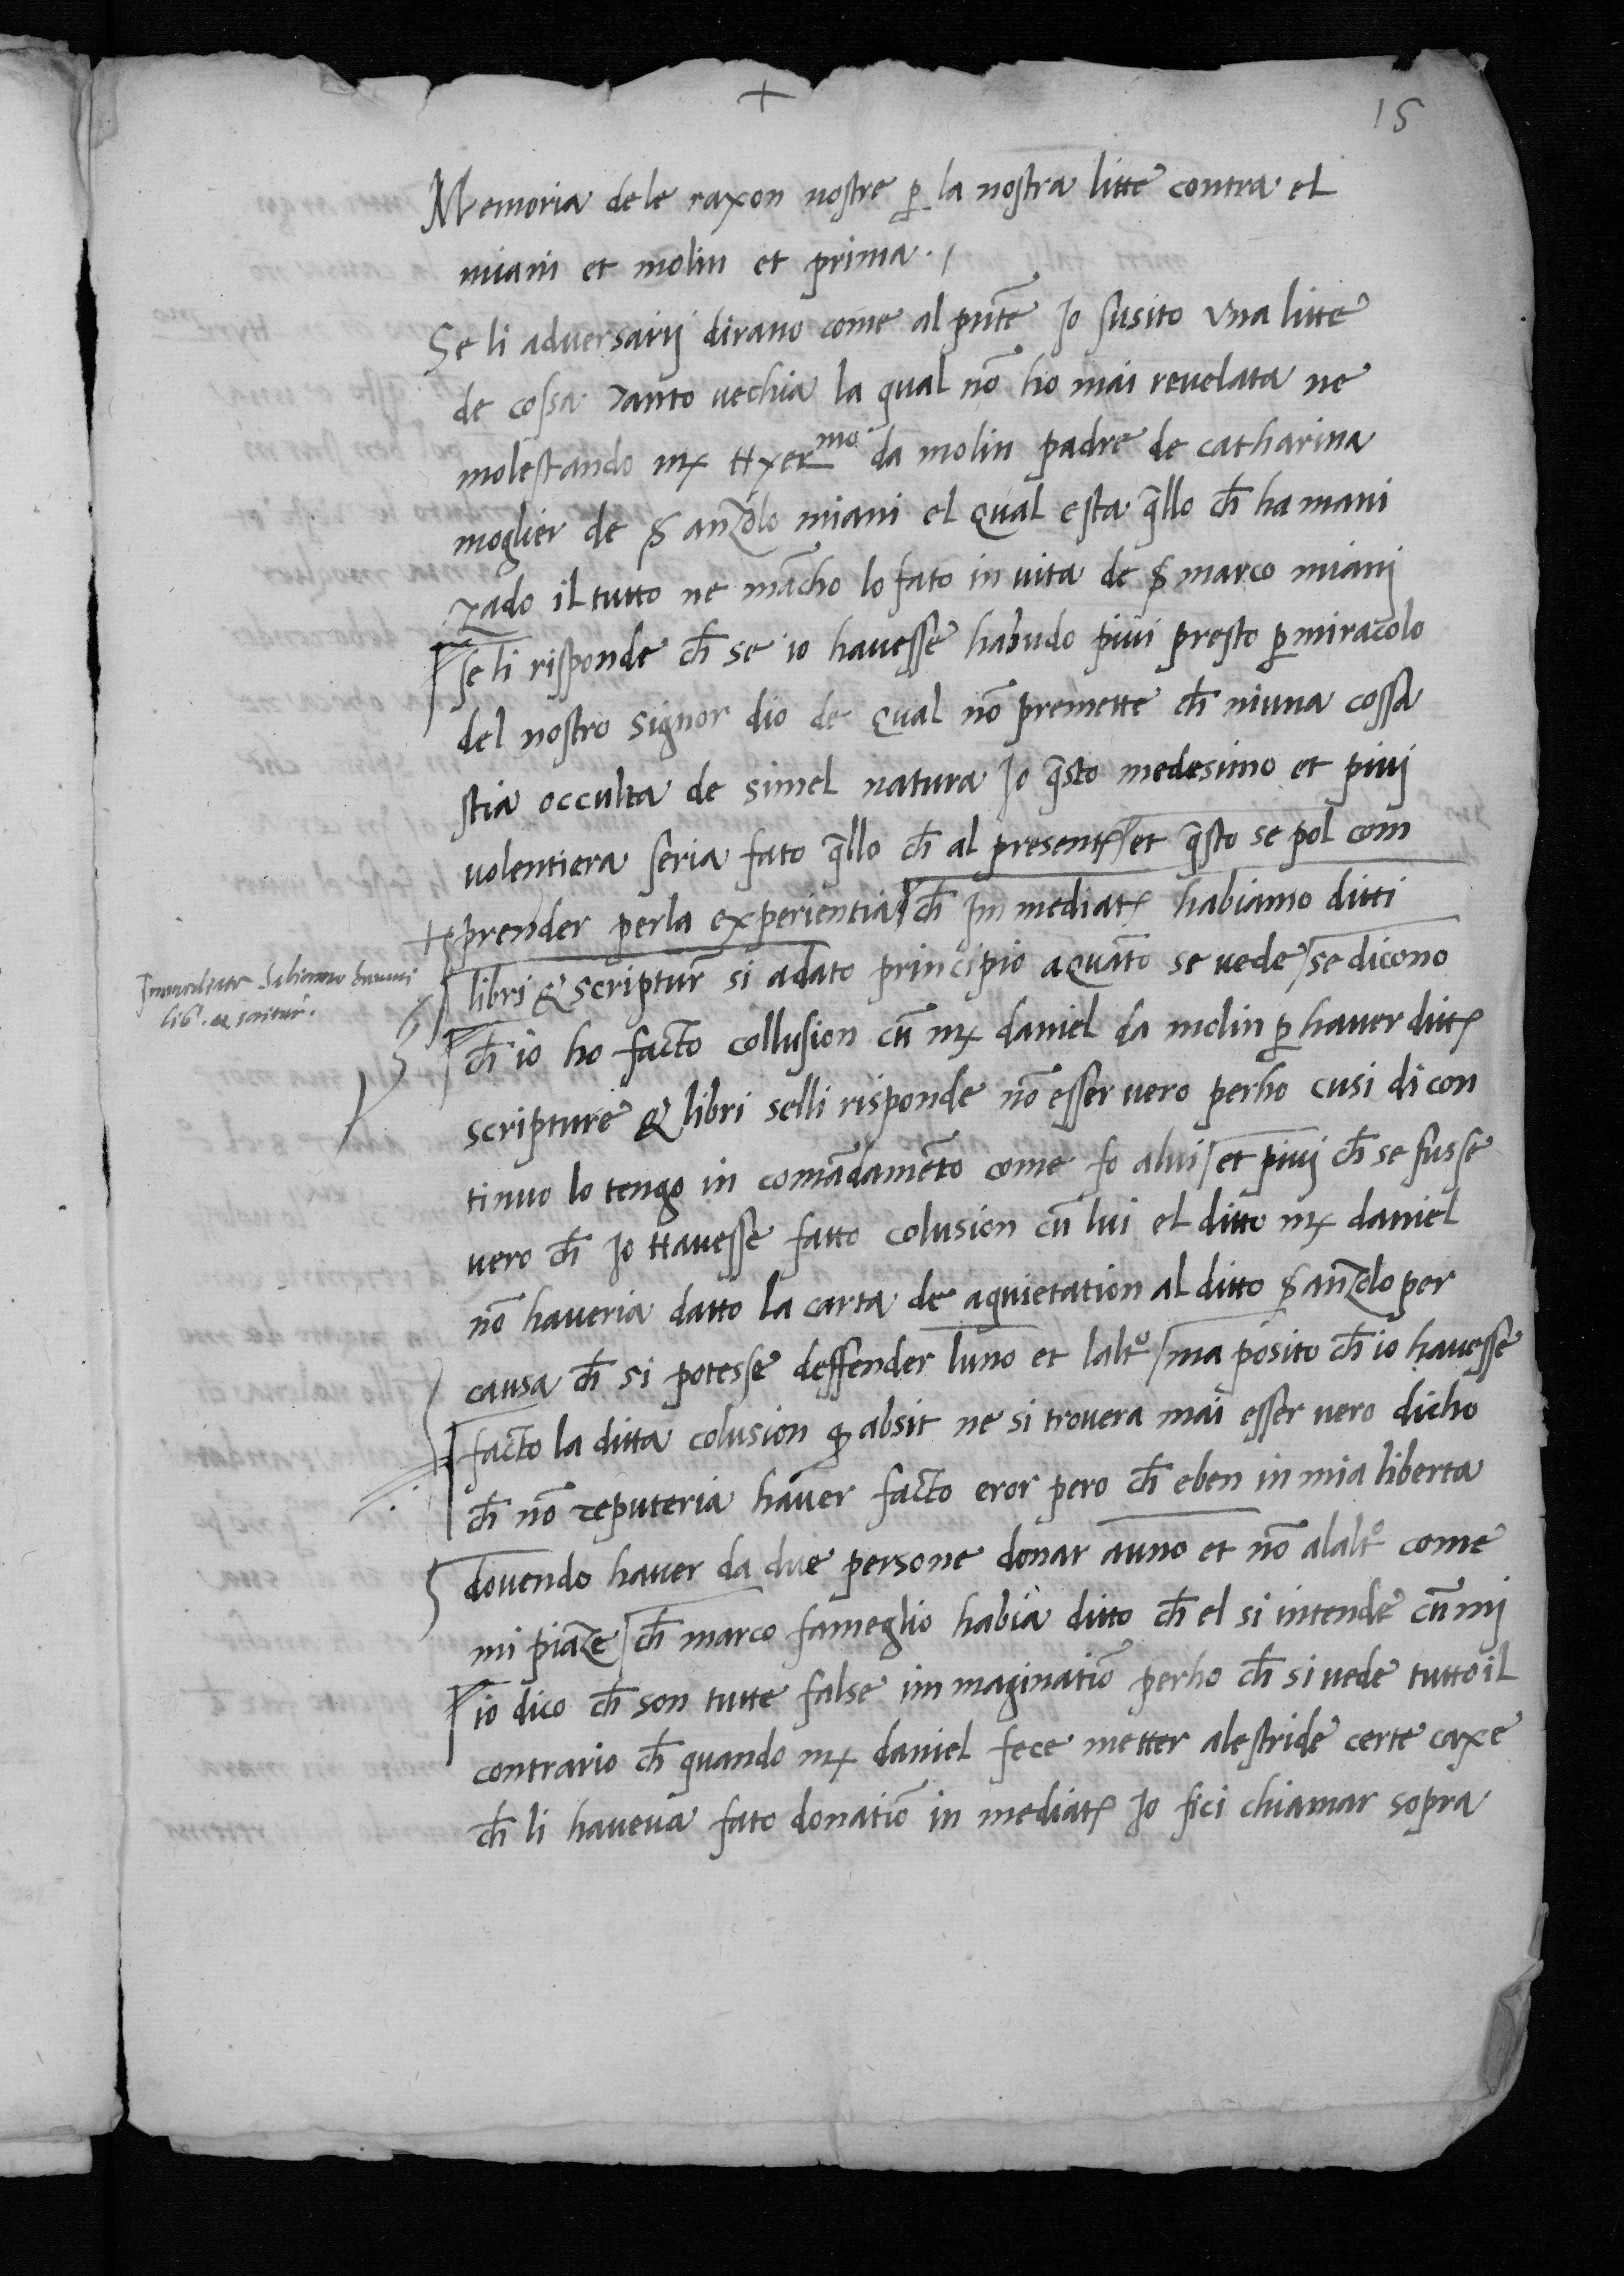 +
15
Memoria dele raxon nostre ꝑ la nostra litte contra el
miani et molin et prima ./
Se li adversarij dirano come al pnte Jo susito Una litte
de cossa tanto vechia la qual nõ ho mai revelata ne
molestando mʳ Hyer^mo da molin padre de catharina
moglier de ẞ anzolo miani el qual esta q̃llo ch̃ ha mani
zado il tutto ne mãcho lo fato in vita de ẞ marco miani
se li risponde ch̃ se io havesse habudo piui presto ꝑ miracolo
del nostro signor dio de qual nõ premette ch̃ niuna cossa
stia occulta de simel natura Jo q̃sto medesimo et piuj
volentiera seria fato q̃llo ch̃ al present / et q̃sto se pol com
+ prender perla experientia / ch̃ Im mediatɇ habiamo ditti
libri & scriptur̃ si adato principio aquãto se vede / se dicono
lib. & scritur.
ch̃ io ho facto collusion cũ mʳ daniel da molin ꝑ haver dittɇ
scripture & libri selli risponde nõ esser vero perho cusi di con
tinuo lo tengo in comãdamẽto come fo alui / et piuj ch̃ se fusse
vero ch̃ Jo Havesse fatto colusion cũ lui el ditto mʳ daniel
nõ haveria datto la carta de aquietation al ditto ẞ anzolo per
causa ch̃ si potesse deffender luno et laltº / ma posito ch̃ io havesse
facto la ditta colusion ꝙ absit ne si trovera mai esser vero dicho
ch̃ nõ reputeria haver facto eror pero ch̃ eben in mia liberta
dovendo haver da due persone donar auno et nõ alaltº come
mi piaze / ch̃ marco fameglio habia ditto ch̃ el si intende cũ mj
io dico ch̃ son tutte false im maginatiõ perho ch̃ si vede tutto il
contrario ch̃ quando mʳ daniel fece metter alestride certe caxe
ch̃ li haveva fato donatiõ in mediatɇ Jo fici chiamar sopra